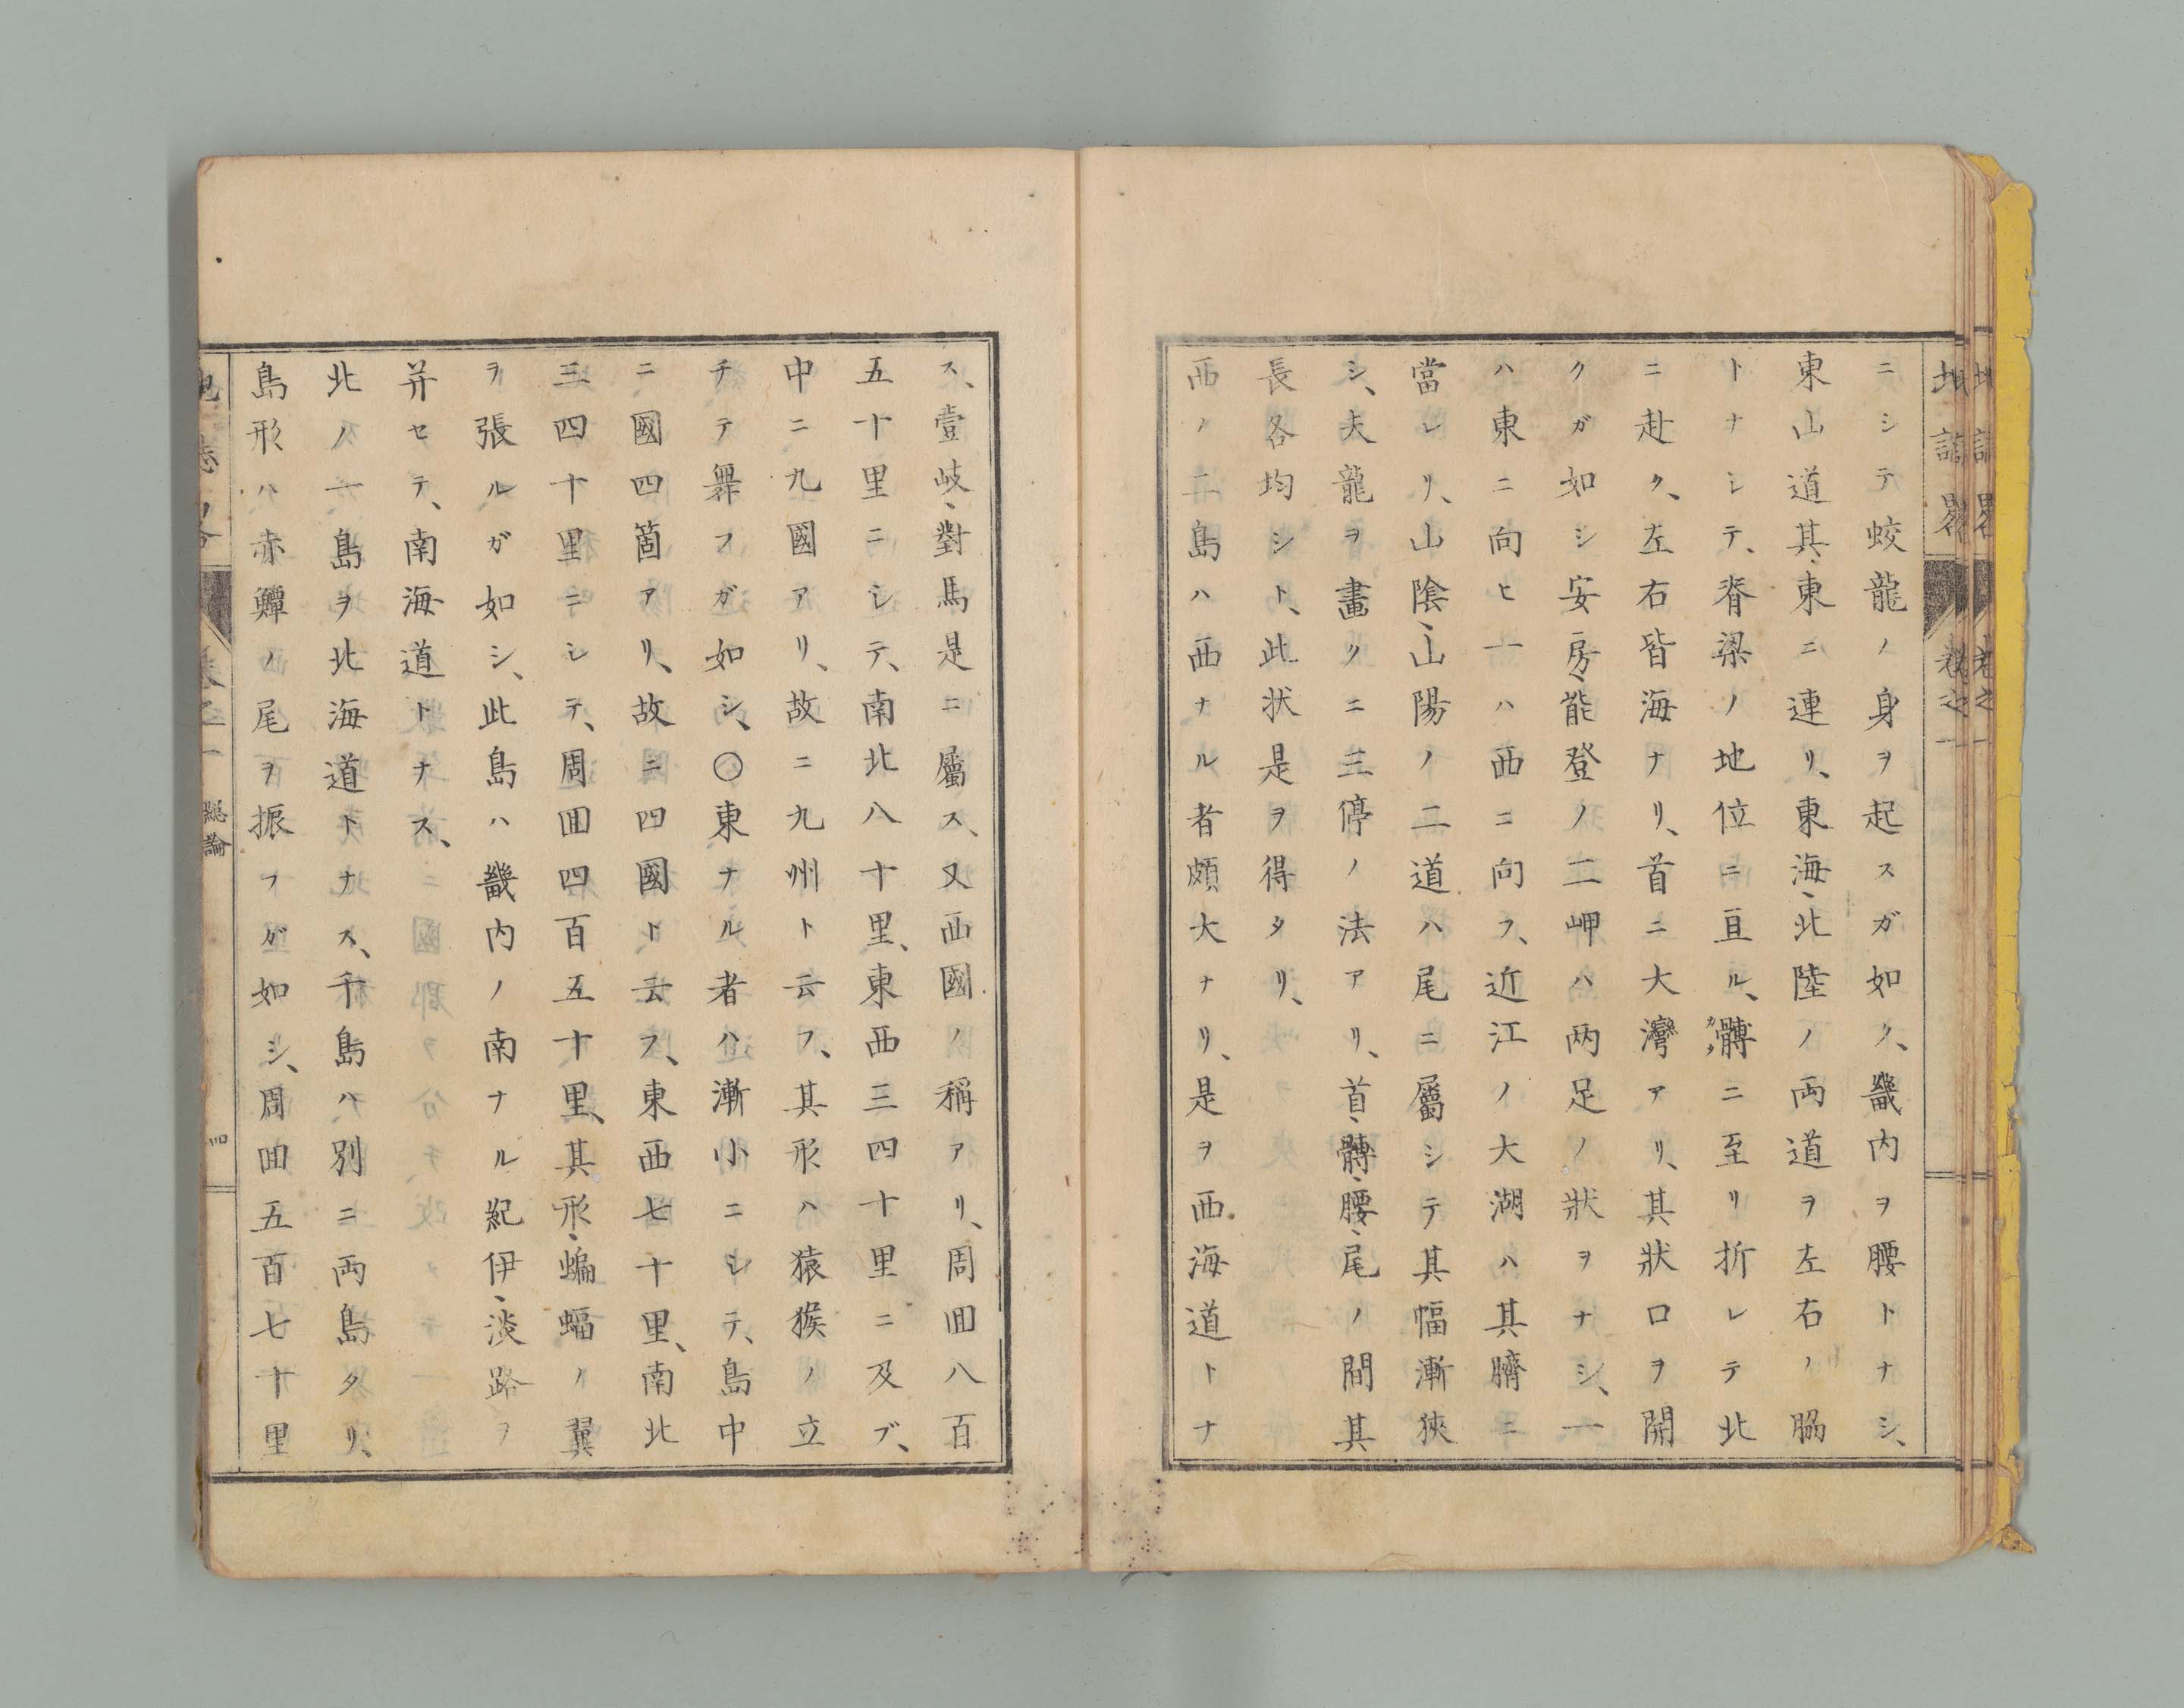 地誌畧 卷之一
ニシテ蛟龍ノ身ヲ起スガ如ク、畿内ヲ腰トナシ、
東山道其東ニ連リ、東海、北陸ノ両道ヲ左右ノ脇
トナシテ、脊梁ノ地位ニ亘ル、髆ニ至リ折レテ北
ニ赴ク、左右皆海ナリ、首ニ大灣アリ、其狀口ヲ開
クガ如シ安房、能登ノ二岬ハ両足ノ狀ヲナシ、一
ハ東ニ向ヒ一ハ西ニ向フ、近江ノ大湖ハ其臍ニ
當レリ、山陰、山陽ノ二道ハ尾ニ屬シテ其幅漸狹
シ、夫龍ヲ畫クニ三停ノ法アリ、首、髆、腰、尾ノ間其
長各均シト、此状是ヲ得タリ、
西ノ二島ハ西ナル者頗大ナリ、是ヲ西海道トナ
ス、壹岐、對馬是ニ屬ス、又西國ノ稱アリ、周囬八百
五十里ニシテ、南北八十里、東西三四十里ニ及ブ、
中ニ九國アリ、故ニ九州ト云フ、其形ハ猿猴ノ立
チテ舞フガ如シ、○東ナル者ハ漸小ニシテ、島中
ニ國四箇アリ、故ニ四國ト云フ、東西七十里、南北
三四十里ニシテ、周囬四百五十里、其形、蝙蝠ノ翼
ヲ張ルガ如シ、此島ハ畿内ノ南ナル紀伊、淡路ヲ
并セテ、南海道トナス、
北ノ一島ヲ北海道トナス、千島ハ別ニ両島タリ、
島形ハ赤鱏ノ尾ヲ振フガ如シ、周囬五百七十里
地誌畧 卷之一 總論 四